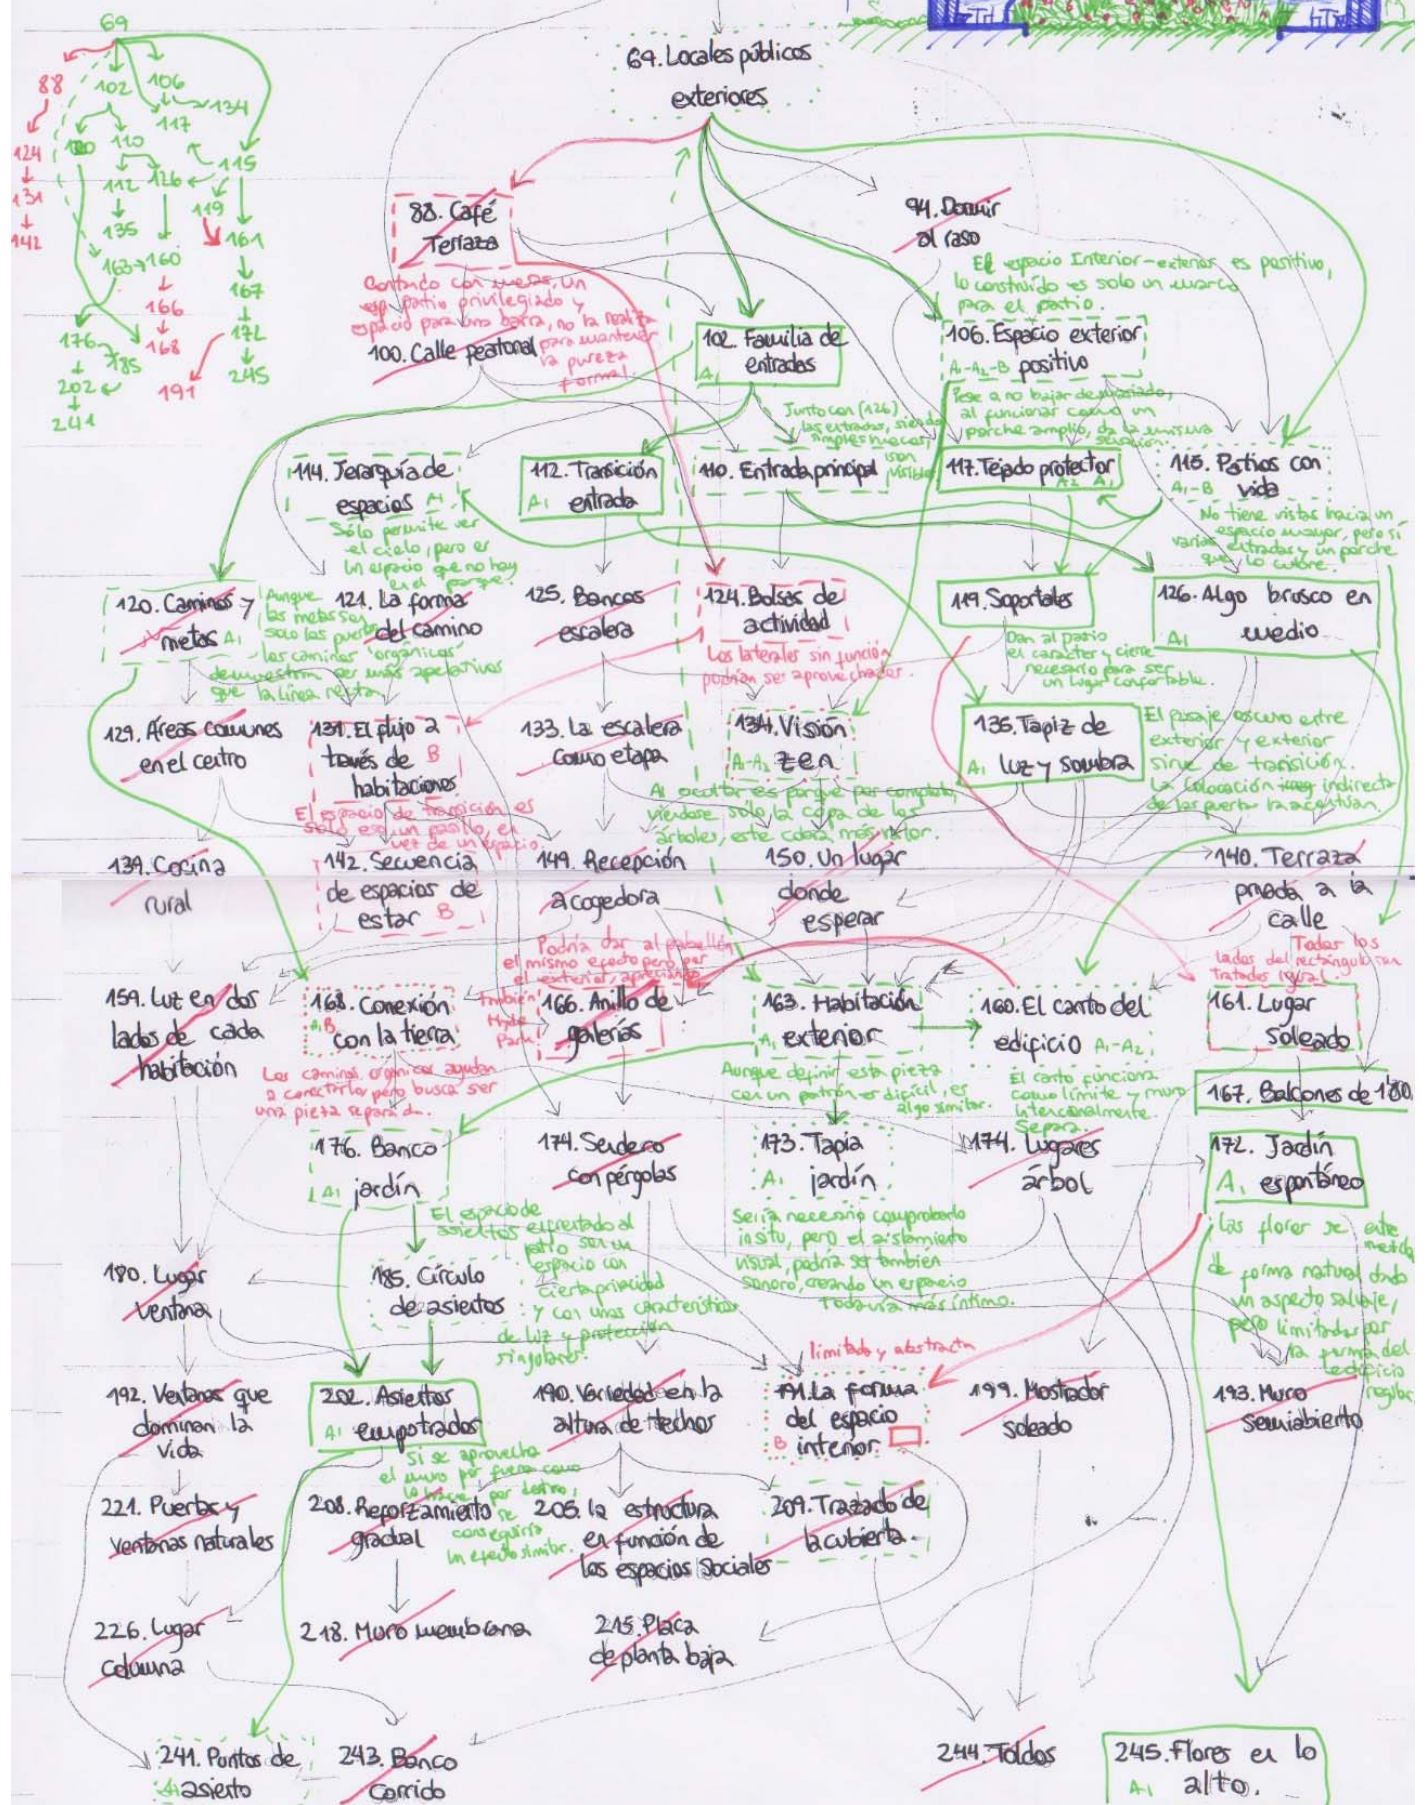 69
88 102 106
134
117
124 120 110 115
112 126
131 119
135 161
142
163 160
167
166
176 172
168
185
202 191 245
241
69. Locales públicos
exteriores
88. Café
Terraza
94. Dormir
al raso
Contando con mesas, un
patio privilegiado y
espacio para una barra, no la realiza
para mantener
la pureza
formal.
El espacio Interior-exterior es positivo,
lo construido es solo un marco
para el patio.
100. Calle peatonal
102. Familia de
entradas
A1
106. Espacio exterior
A1-A2-B positivo
Junto con (126)
las entradas, siendo
simples huecos,
son
visibles
Pese a no bajar demasiado,
al funcionar como un
porche amplio, da la misma
sensación.
114. Jerarquía de
espacios A1
112. Transición
A1 entrada
110. Entrada principal
117. Tejado protector
A2 A1
115. Patios con
A1-B vida
Sólo permite ver
el cielo, pero es
un espacio que no hay
en el parque.
No tiene vistas hacia un
espacio mayor, pero sí
varias entradas y un porche
que lo cubre.
120. Caminos y
metas A1
Aunque
las metas son
solo las puertas
los caminos "orgánicos"
demuestran ser más apelativos
que la línea recta.
121. La forma
del camino
125. Bancos
escalera
124. Bolsas de
actividad
Los laterales sin función
podrían ser aprovechados.
119. Soportales
Dan al patio
el carácter y cierre
necesario para ser
un lugar confortable.
126. Algo brusco en
A1 medio
129. Áreas comunes
en el centro
131. El flujo a
través de B
habitaciones
El espacio de transición es
solo eso, un pasillo, en
vez de un espacio.
133. La escalera
como etapa
134. Visión
A1-A2 zen
Al ocultar es parque por completo,
viéndose sólo la copa de los
árboles, este cobra más valor.
135. Tapiz de
A1 luz y sombra
El pasaje oscuro entre
exterior y exterior
sirve de transición.
La colocación indirecta
de las puertas la acentúan.
139. Cocina
rural
142. Secuencia
de espacios de
estar B
149. Recepción
acogedora
150. Un lugar
donde
esperar
140. Terraza
privada a la
calle
Podría dar al pabellón
el mismo efecto pero por
el exterior, apreciando
también
Hyde
Park
Todos los
lados del rectángulo son
tratados igual.
159. Luz en dos
lados de cada
habitación
168. Conexión
A1B con la tierra
Los caminos orgánicos ayudan
a conectarlo, pero busca ser
una pieza separada.
166. Anillo de
galerías
163. Habitación
A1 exterior
Aunque definir esta pieza
con un patrón es difícil, es
algo similar.
160. El canto del
edificio A1-A2
El canto funciona
como límite y muro
intencionalmente
separa.
161. Lugar
soleado
167. Balcones de 1'80
176. Banco
A1 jardín
174. Sendero
con pérgolas
173. Tapia
A1 jardín
174. Lugares
árbol
172. Jardín
A1 espontáneo
El espacio de
asientos enfrentado al
patio son un
espacio con
cierta privacidad
y con unas características
de luz y protección
singulares.
Sería necesario comprobarlo
in situ, pero el aislamiento
visual, podría ser también
sonoro, creando un espacio
todavía más íntimo.
Las flores se entre
mezclan
de forma natural dando
un aspecto salvaje,
pero limitadas por
la forma del
edificio
180. Lugar
ventana
185. Círculo
de asientos
limitado y abstracta
192. Ventanas que
dominan la
vida
202. Asientos
A1 empotrados
190. Variedad en la
altura de techos
191. La forma
del espacio
B interior
199. Mostrador
soleado
193. Muro
semiabierto
Si se aprovecha
el muro por fuera como
lo hace por dentro,
se
conseguiría
un efecto similar.
221. Puertas y
ventanas naturales
208. Reforzamiento
gradual
205. La estructura
en función de
los espacios sociales
209. Trazado de
la cubierta
226. Lugar
columna
218. Muro membrana
215. Placa
de planta baja
241. Puntos de
A1 asiento
243. Banco
corrido
244. Toldos
245. Flores en lo
A1 alto.